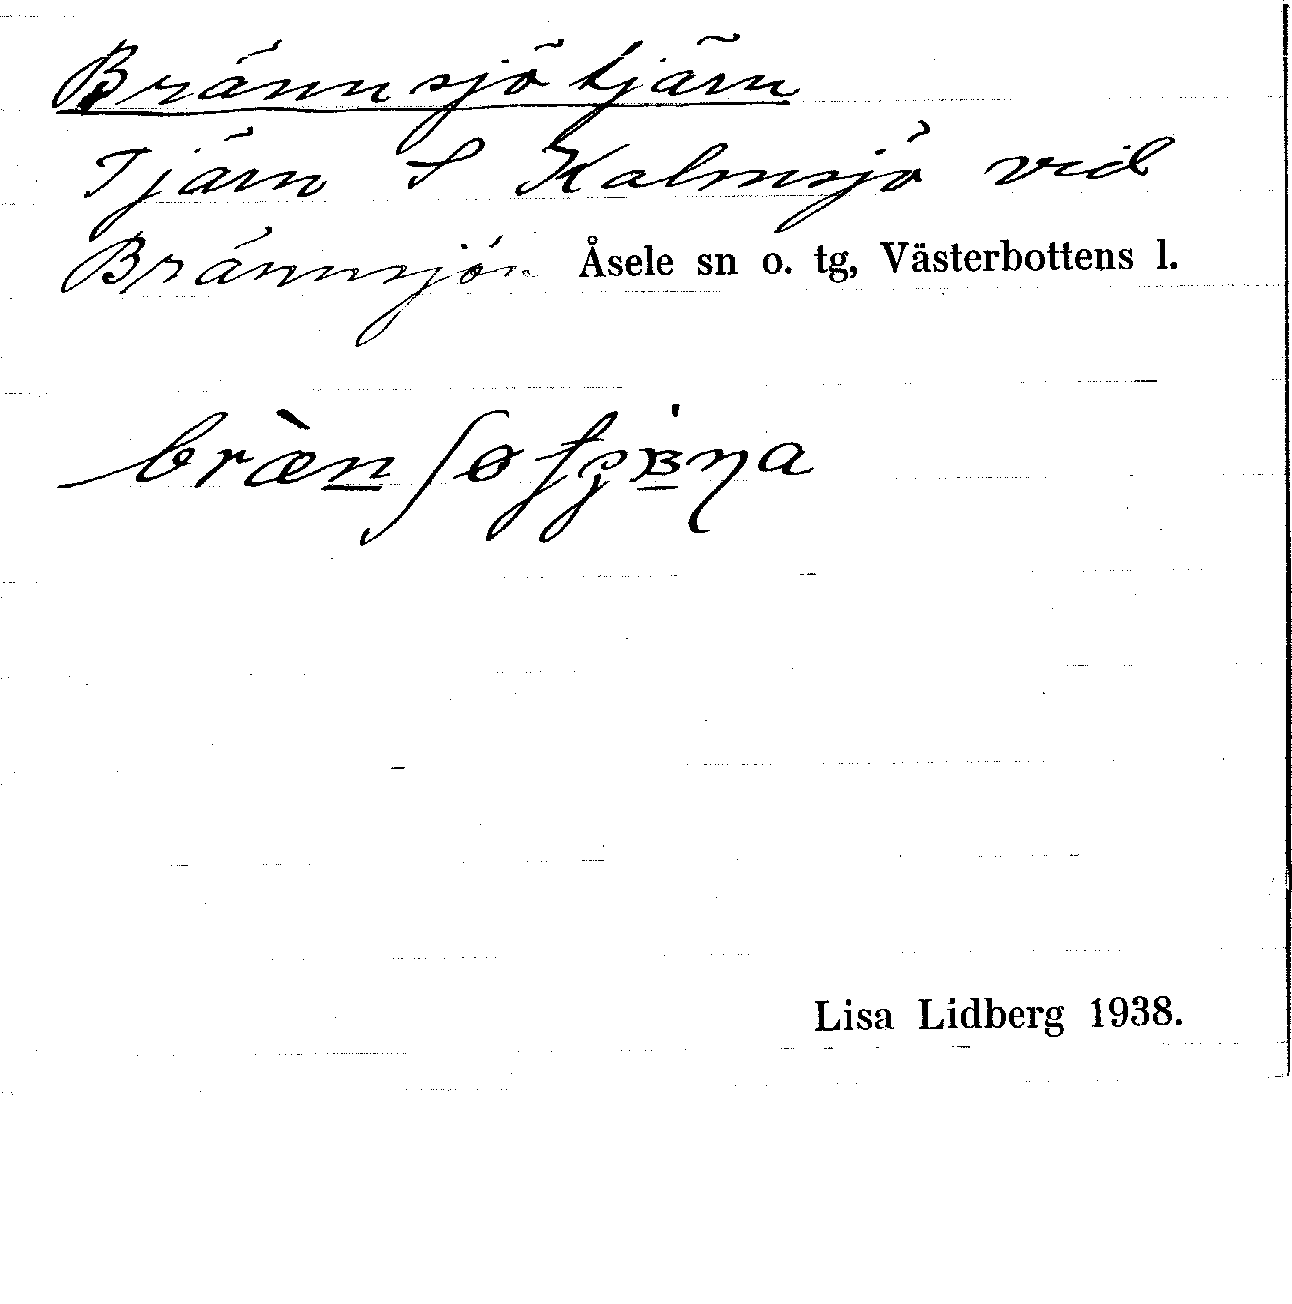 Brännsjötjärn
Tjärn S Kalmsjö vid
Brännsjön Åsele sn o. tg, Västerbottens l.
Lisa Lidberg 1938.